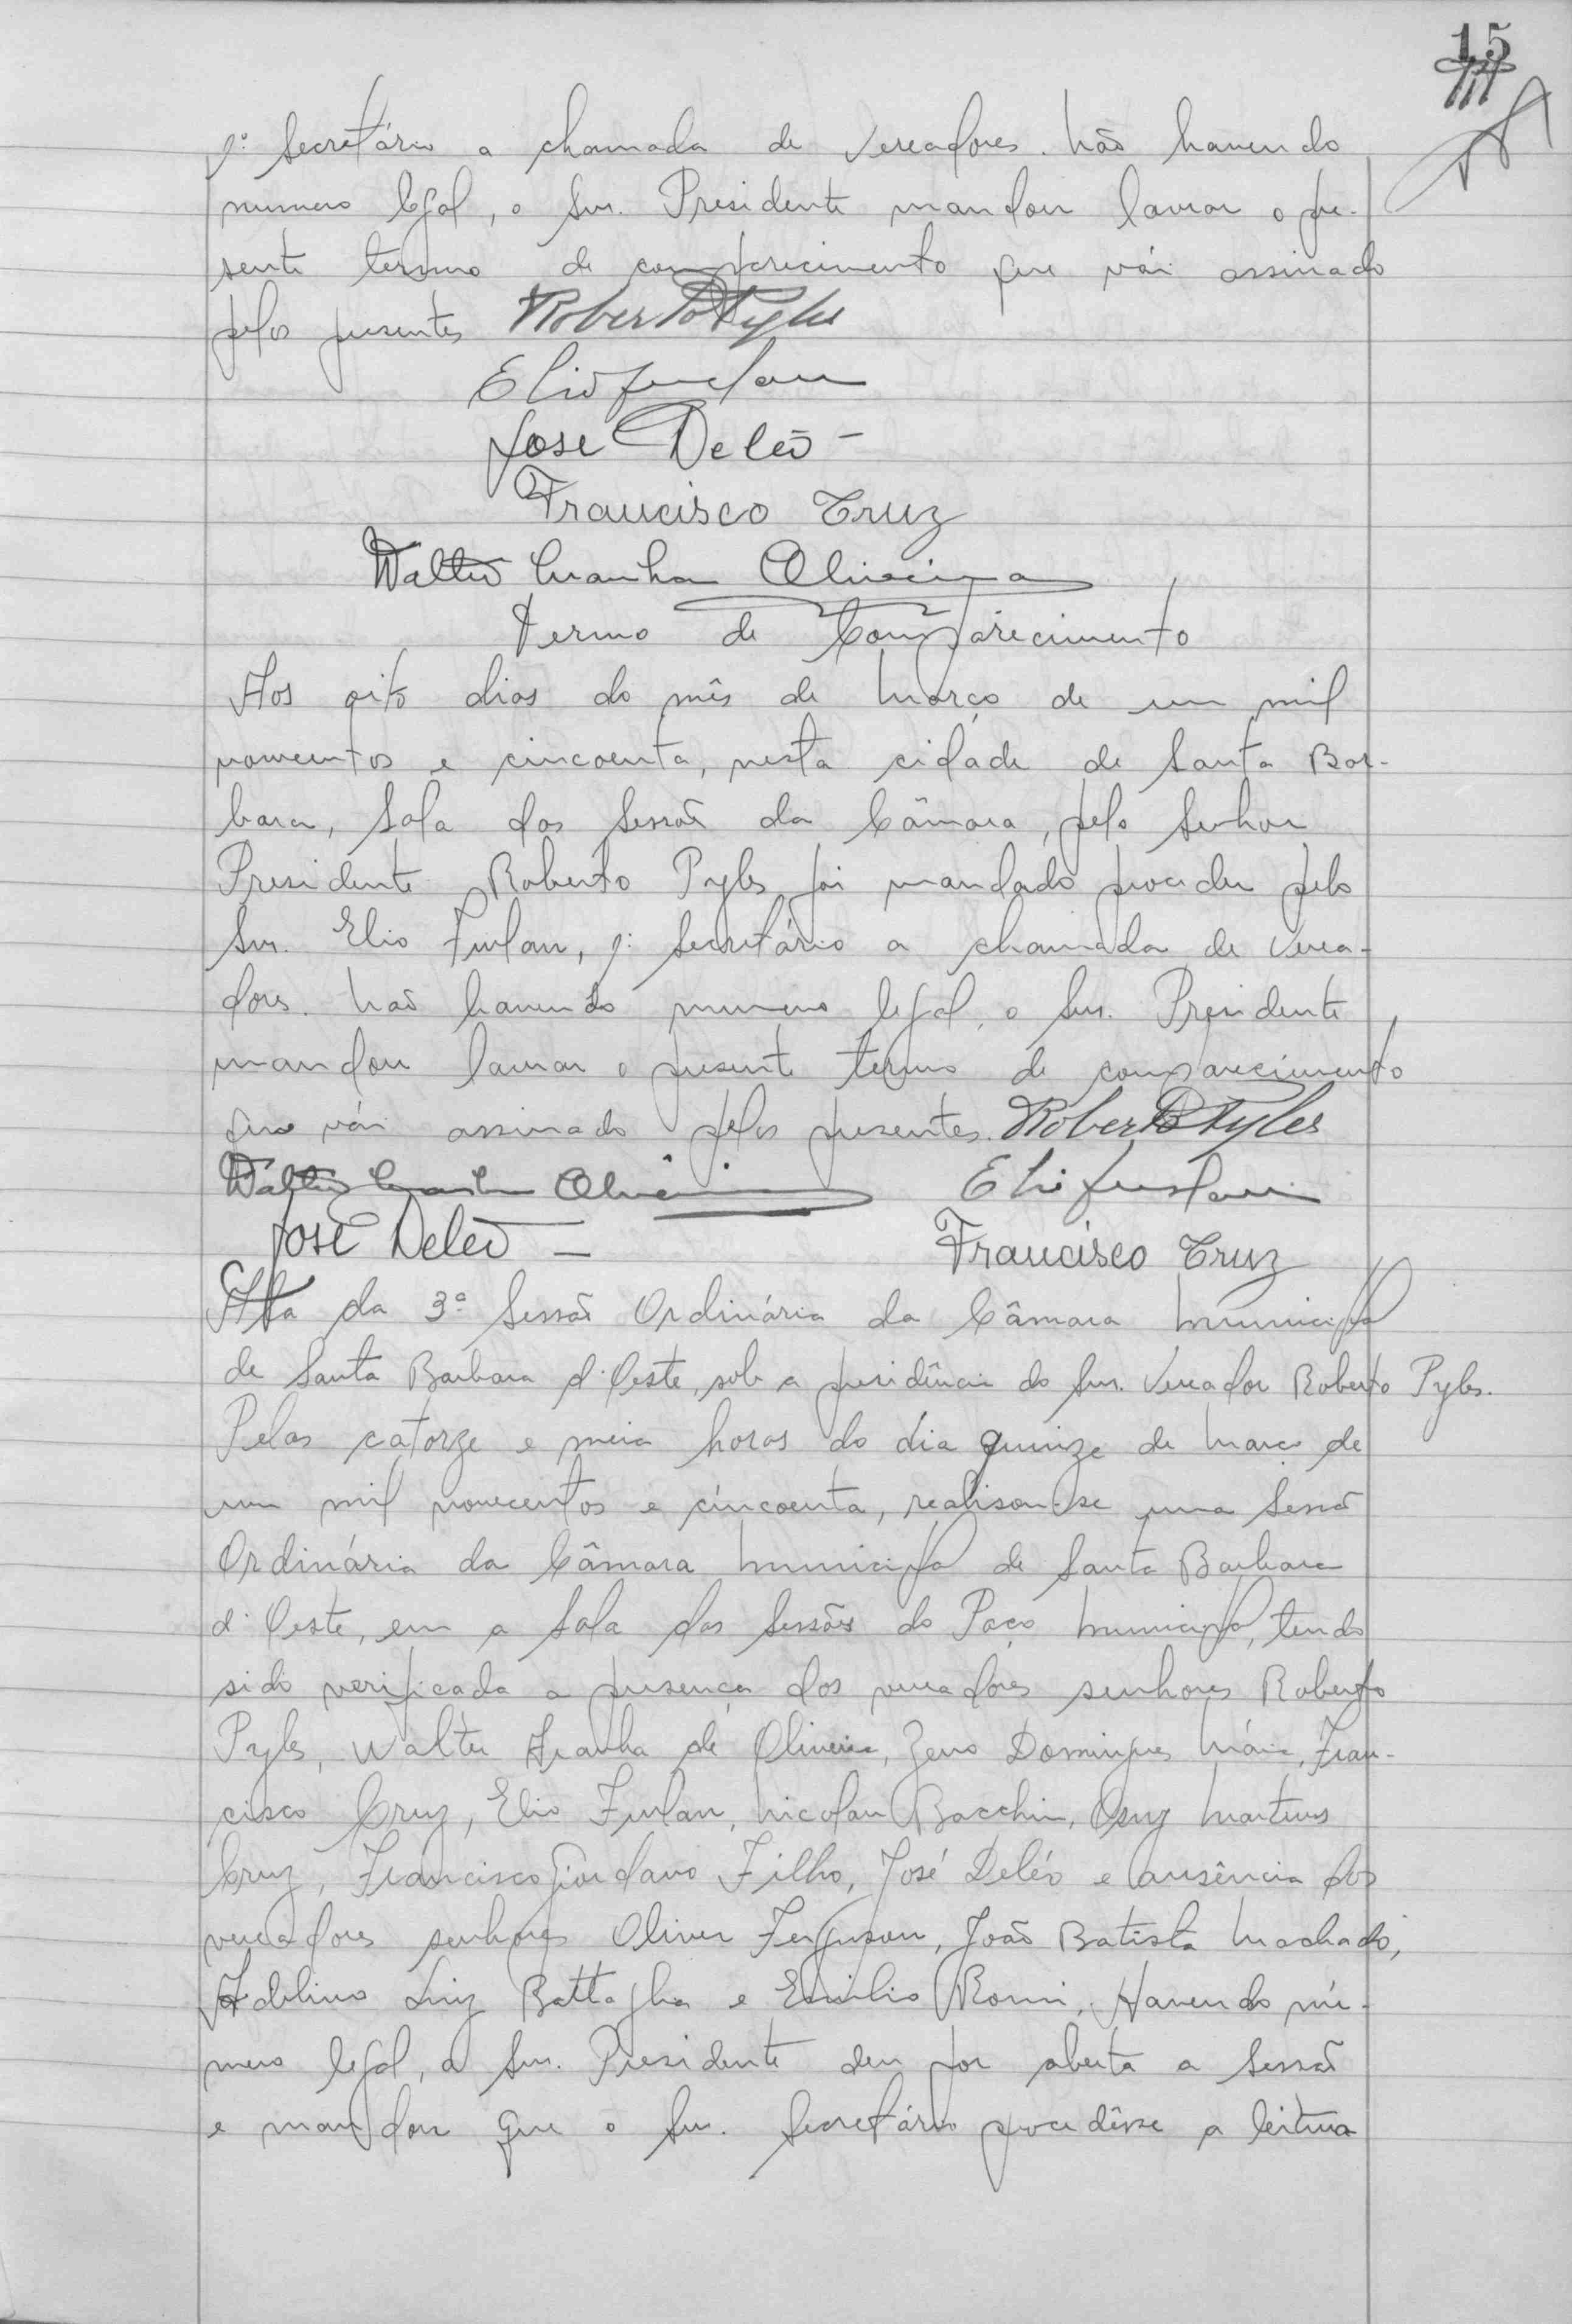 15
1º Secretário a chamada de Vereadores. Não havendo
numero legal, o Snr. Presidente mandou lavrar o pre-
sente termo de comparecimento que vái assinado
pelos presentes Roberto Pyles
Elio Furlan
Jose Deleo -
Francisco Cruz
Walter Aranha Oliveira
Termo de Comparecimento
Aos oito dias do mês de Março de um mil
novecentos e cincoenta, nesta cidade de Santa Bar-
bara, Sala das Sessões da Câmara, pelo Senhor
Presidente Roberto Pyles foi mandado proceder pelo
Snr. Elio Furlan, 1º Secretário a chamada de Verea-
dores. Não havendo numero legal, o Snr. Presidente
mandou lavrar o presente termo de comparecimento
que vái assinado pelos presentes. Roberto Pyles
Walter Aranha Oliveira Elio Furlan
José Deleo - Francisco Cruz
Ata da 3ª Sessão Ordinária da Câmara Municipal
de Santa Barbara d'Oeste, sob a presidência do Snr. Vereador Roberto Pyles.
Pelas catorze e meia horas do dia quinze de Março de
um mil novecentos e cincoenta, realisou-se uma Sessão
Ordinária da Câmara Municipal de Santa Barbara
d'Oeste, em a Sala das Sessões do Paço Municipal, tendo
sido verificada a presença dos vereadores senhores Roberto
Pyles, Walter Aranha de Oliveira, Zeno Domingues Máia, Fran-
cisco Cruz, Elio Furlan, Nicolau Bacchin, Osny Martins
Cruz, Francisco Giordano Filho, José Deléo e ausência dos
vereadores senhores Oliver Ferguson, João Batista Machado,
Adelino Luiz Battaglia e Emilio Romi. Havendo nú-
mero legal, o Snr. Presidente deu por aberta a Sessão
e mandou que o Snr. Secretário procedêsse a leitura